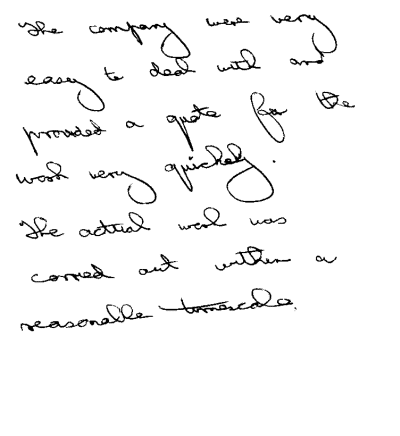 The company were very
easy to deal with and
provided a quote for the
work very quickly.
The actual work was
carried out within a
reasonable timescale.